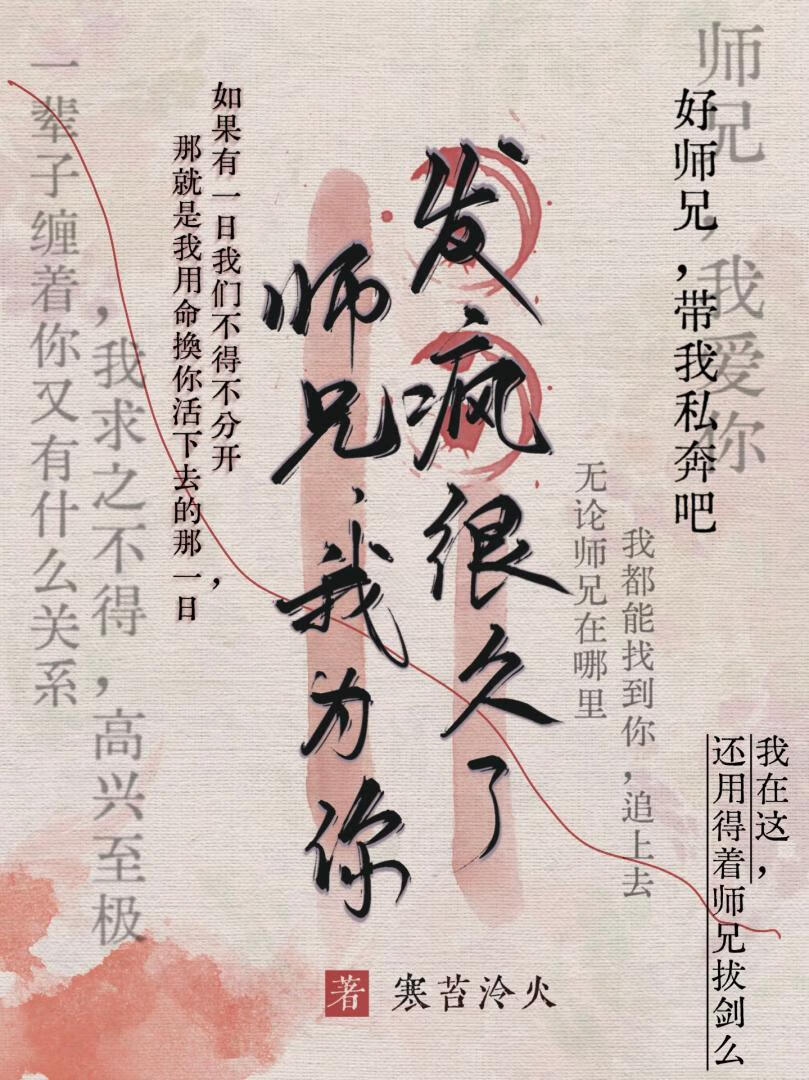 一辈子缠着你又有什么关系
，我求之不得，高兴至极
如果有一日我们不得不分开，
那就是我用命換你活下去的那一日
师兄，我为你
发疯很久了
师兄，我爱你
好师兄，带我私奔吧
无论师兄在哪里
我都能找到你，追上去
我在这，
还用得着师兄拔剑么
著 寒苔泠火